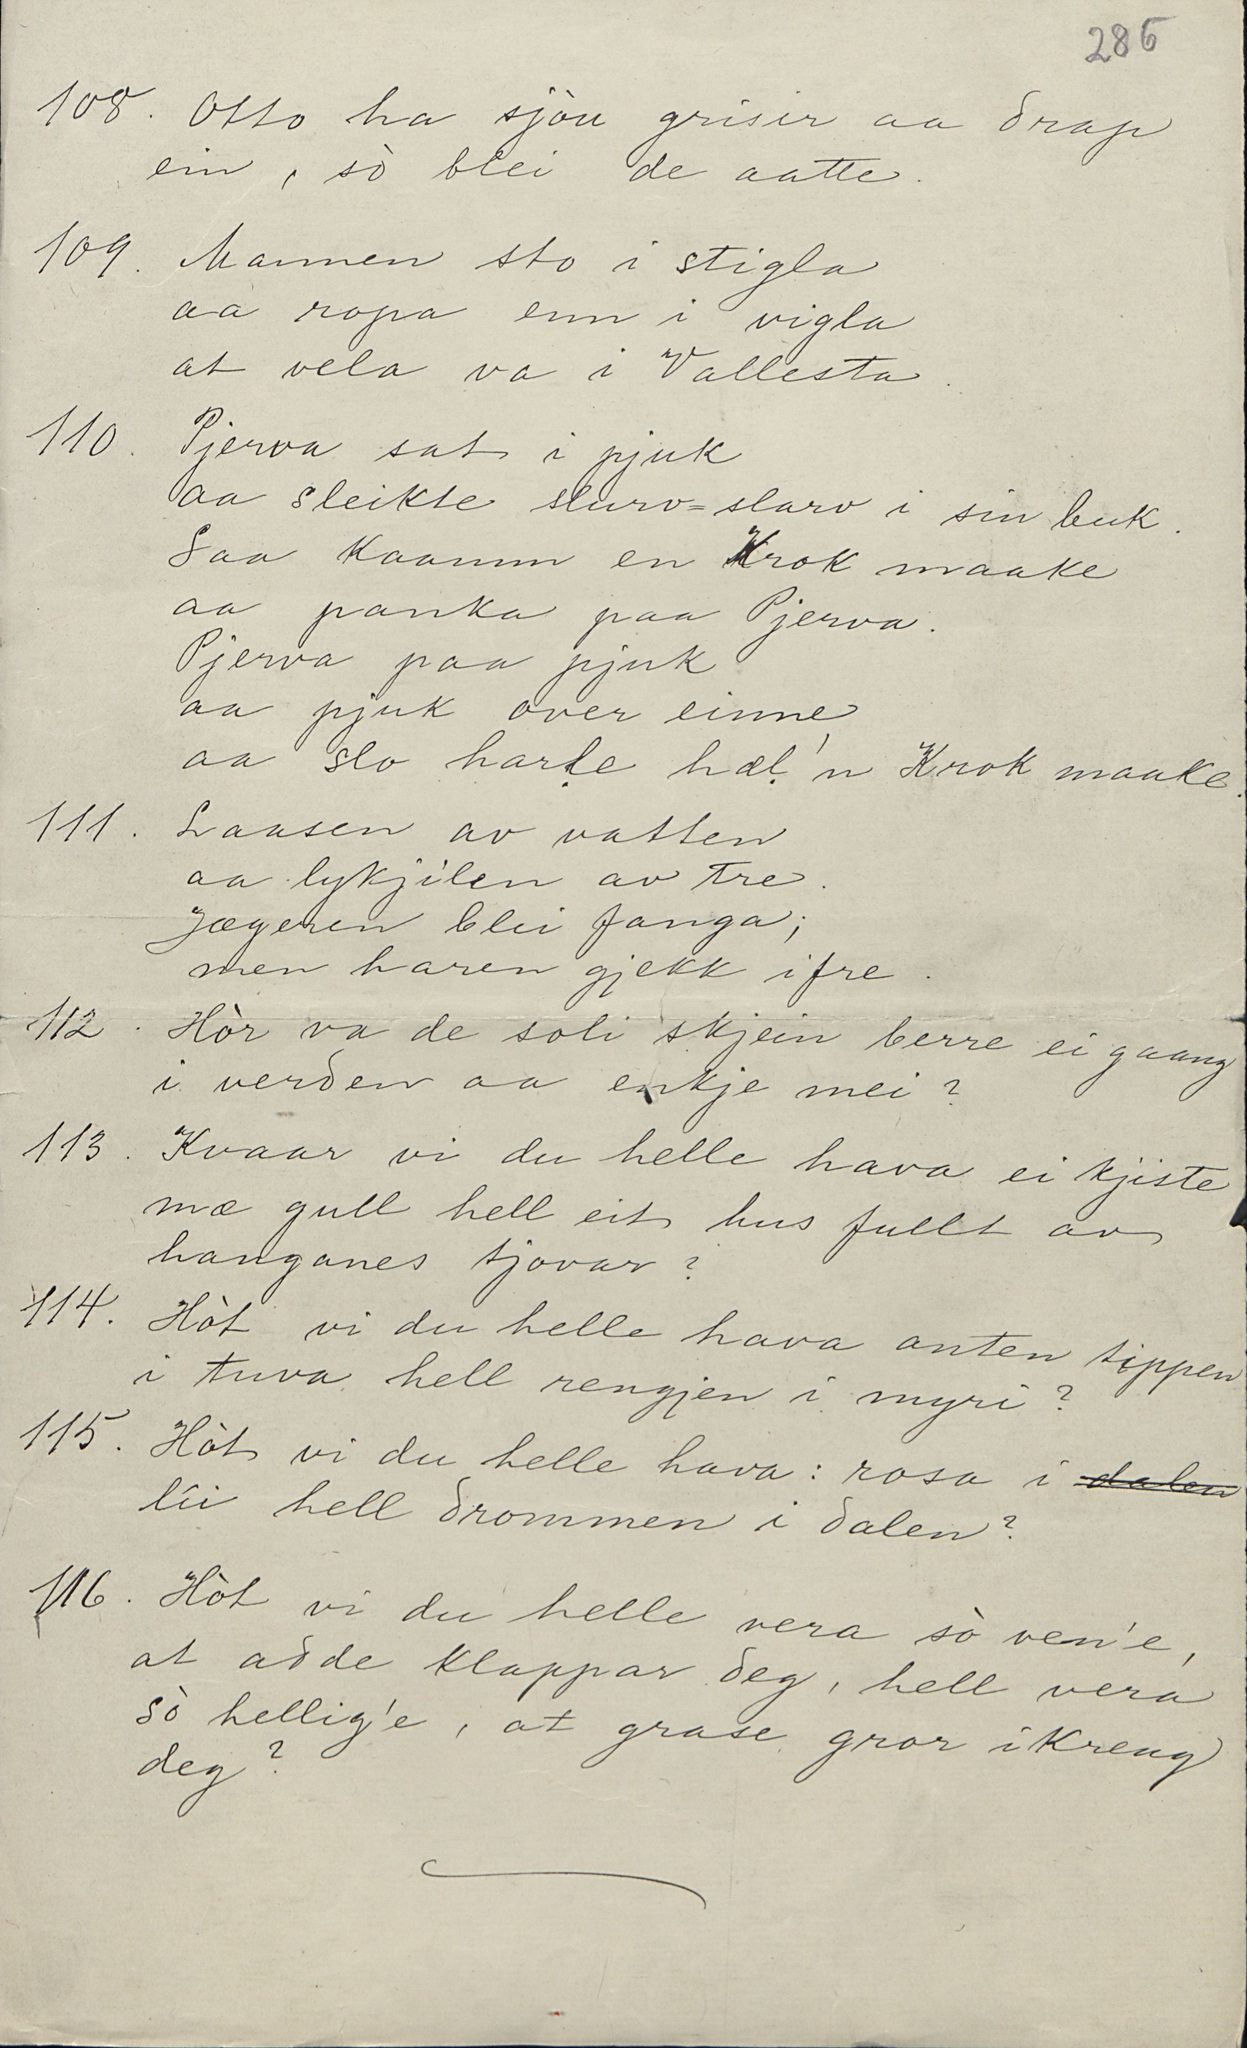 286
108. Otto ha sjòu grisir aa drap
ein, sò blei de aatte.
109. Mannen sto i stigla
aa ropa enn i vigla
at vela va i Vallesta.
110. Pjerva sat i pjuk
aa sleikte slurv=slarv i sin buk.
Saa kaamm en Krok maake
aa panka paa Pjerva.
Pjerva paa pjuk
aa pjuk over einne
aa slo harle hæl'n Krok maake.
111. Laasen av vatten
aa lykjilen av tre.
Jægeren blei fanga;
men haren gjekk ifre.
112. Hòr va de soli skjein berre ei gaang
i verden aa enkje mei?
113. Kvaar vi du helle hava ei kjiste
mæ gull hell eit hus fullt av
hanganes tjovar?
114. Hòt vi du helle hava anten tippen
i tuva hell rengjen i myri?
115. Hòt vi du helle hava: rosa i dalen
lìi hell drommen i dalen?
116. Hòt vi du helle vera sò ven'e,
at adde klappar deg, hell vera
sò hellig'e, at grase gror ikreng
deg?